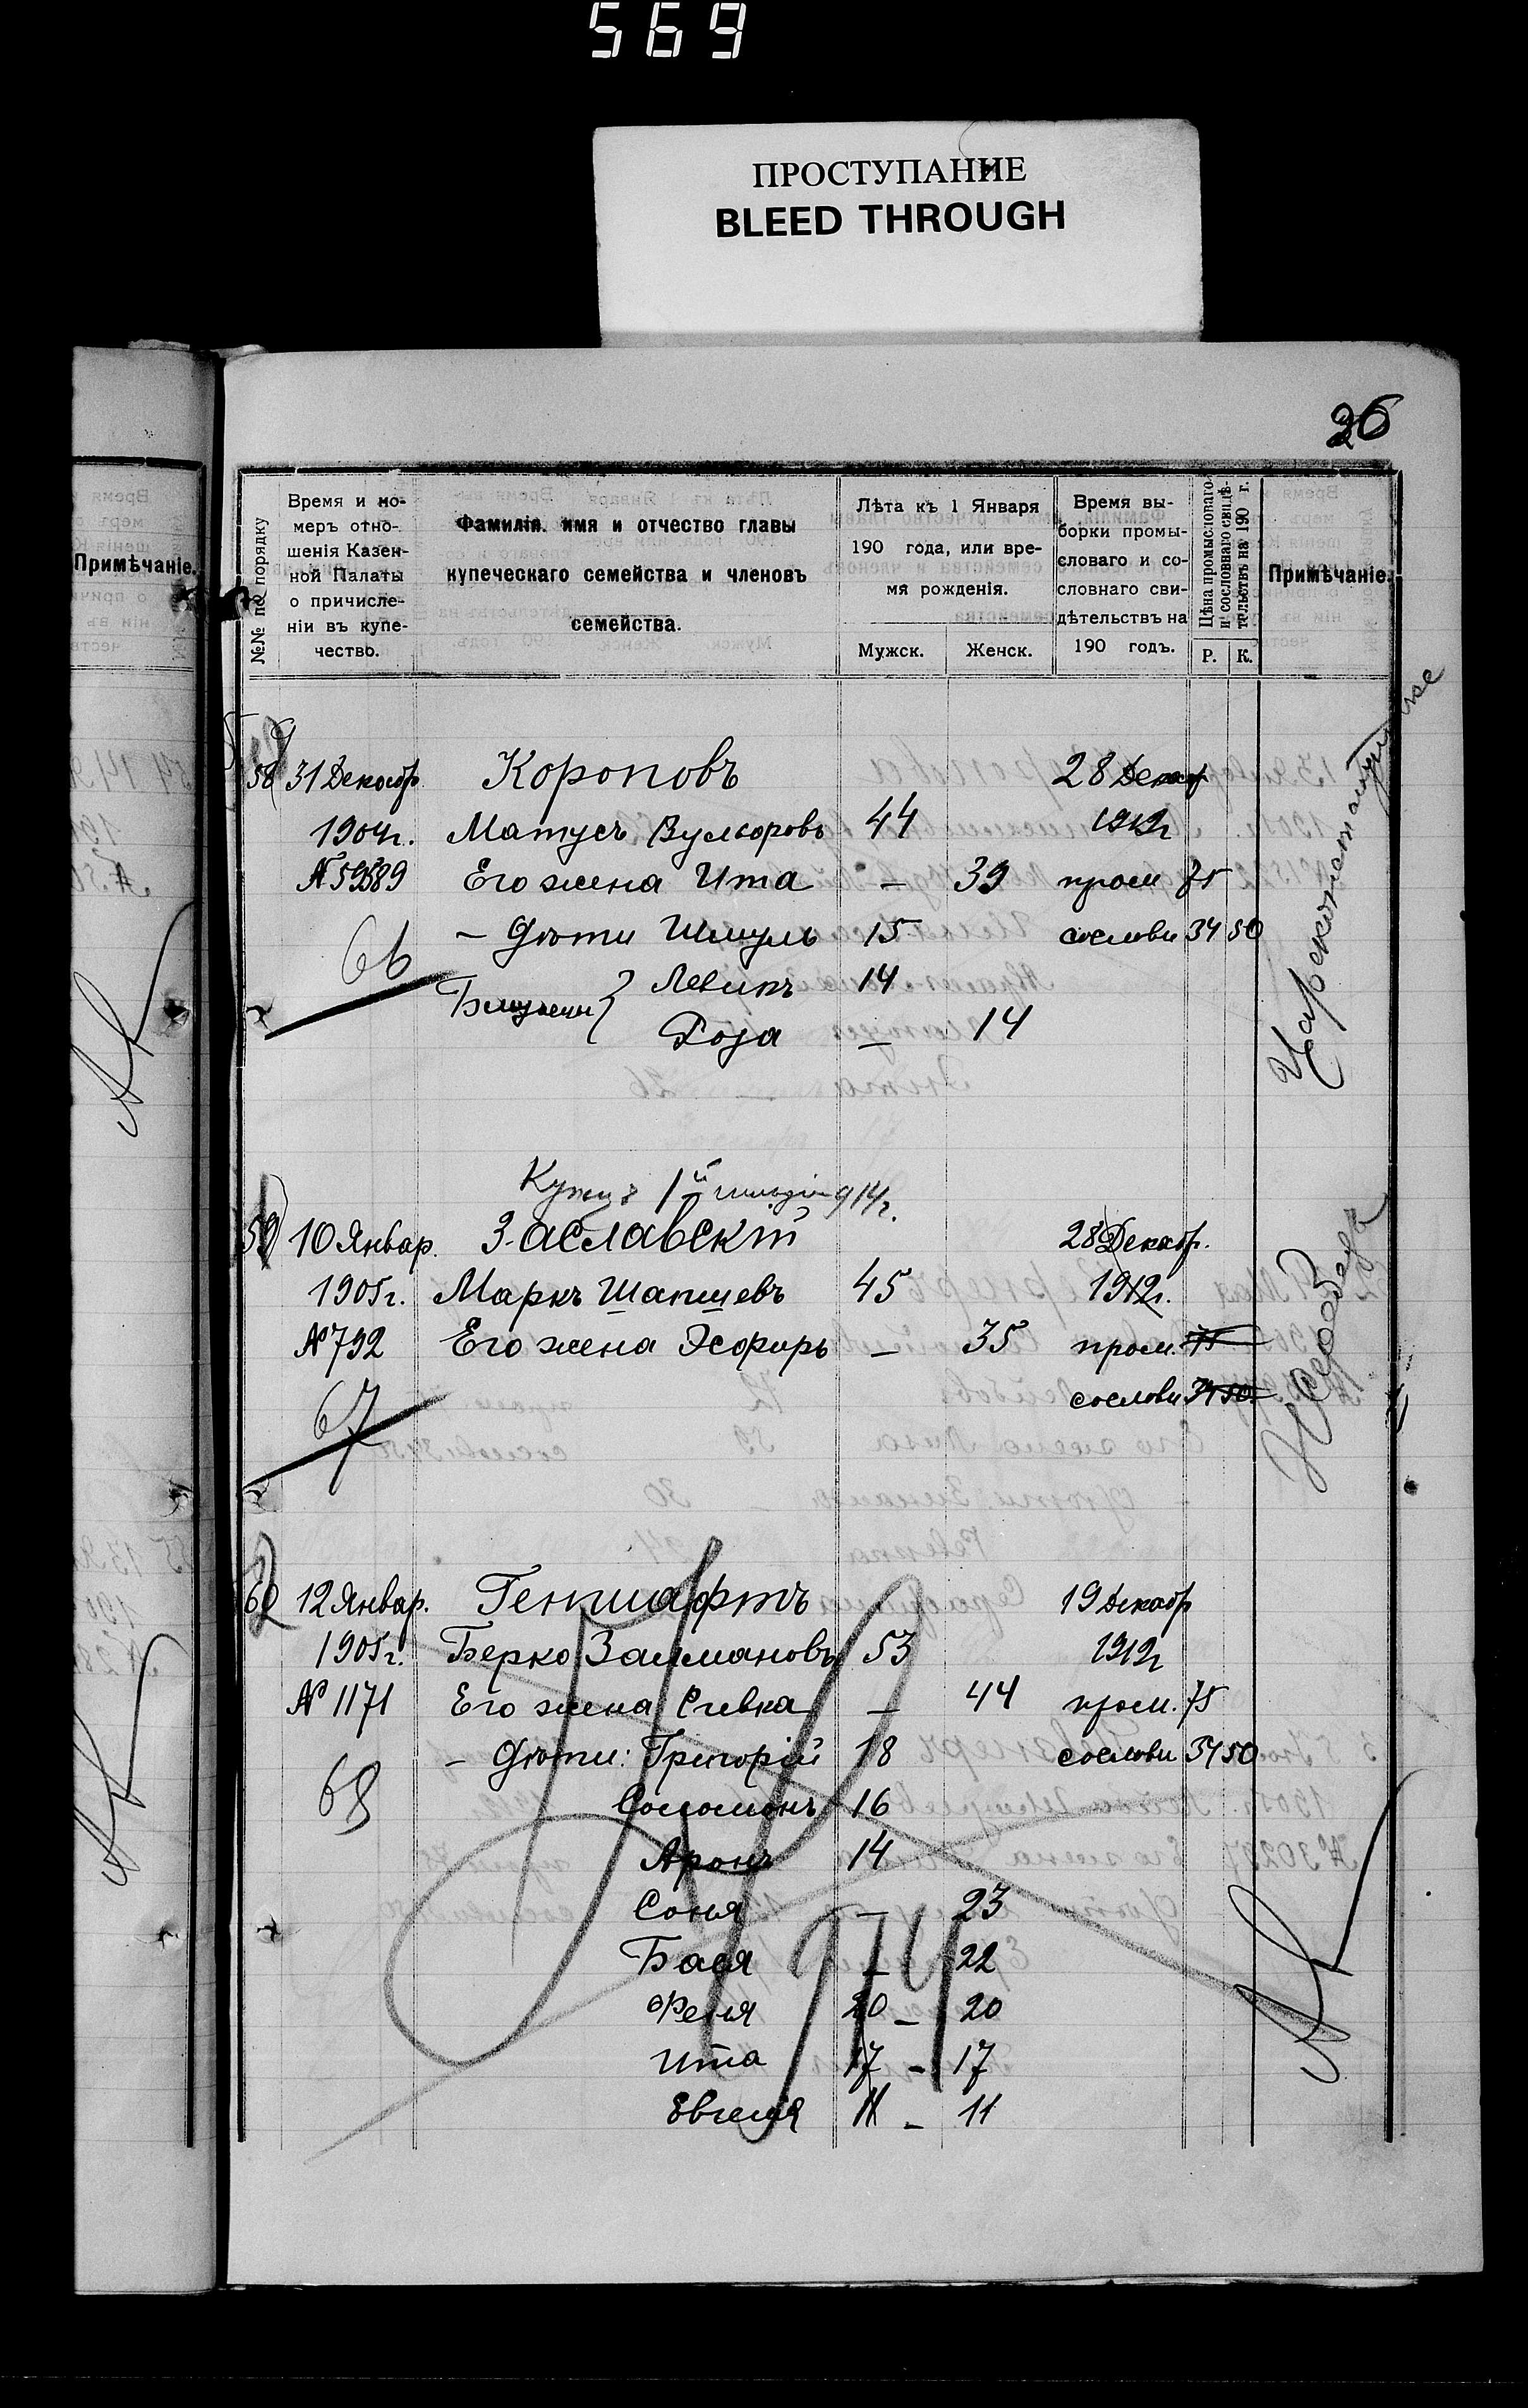 569
ПРОСТУПАНИЕ
BLEED THROUGH
26
Примѣчаніе.
№№ по порядку
Время и но-
меръ отно-
шенія Казен-
ной Палаты
о причисле-
ніи въ купе-
чество.
Фамилія, имя и отчество главы
купеческаго семейства и членовъ
семейства.
Лѣта къ 1 Января
190 года, или вре-
мя рожденія.
Мужск.
Женск.
Время вы-
борки промы-
словаго и со-
словнаго сви-
дѣтельствъ на
190 годъ.
Цѣна промысловаго
и сословнаго свидѣ-
тельствъ на 190 г.
Р. К.
Примѣчаніе.
58 31 Декабр. Коропов 28 Декабр
1904г. Матусъ Вульфовъ 44 1912г
№ 59589 Его жена Ита — 39 пром 75
66 – Дѣти Шмуль 15 сословн 34 50
Близнецы } Левикъ 14
Роза — 14
Купецъ 1й гильдіи 914г.
59 10 Январ. Заславскій 28 Декабр.
1905г. Маркъ Шапшевъ 45 1912г.
№ 792 Его жена Эсфирь — 35 пром. 75
67 сословн 34 50
60 12 Январ. Геншафтъ 19 Декабр
1905г. Берко Залмановъ 53 1912г
№ 1171 Его жена Сливка — 44 пром. 75
68 – Дѣти: Григорій 18 сословн 34 50
Соломонъ 16
Аронъ 14
Соня — 23
Бася — 22
Феня 20 — 20
Ита 17 — 17
Евгенія 11 — 11
914